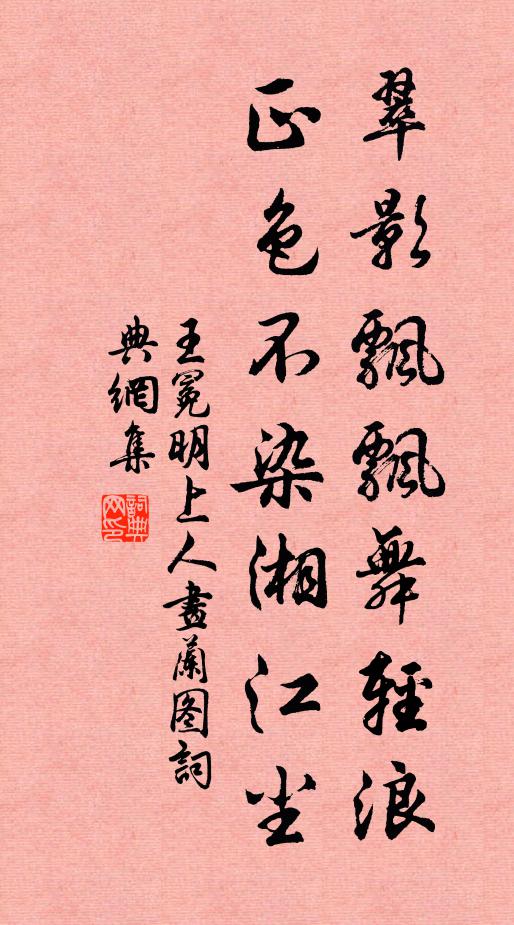 翠影飄飄舞輕浪
正色不染湘江尘
王冕明上人畫蘭图詞
典網集
詞典
网印